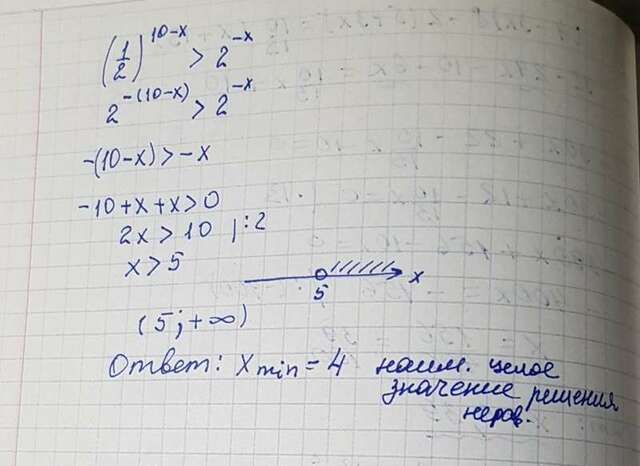 (1/2)^(10-x) > 2^(-x)
2^(-(10-x)) > 2^(-x)
-(10-x)>-x
-10+x+x>0
2x>10 |:2
x>5
5 x
(5;+∞)
Ответ: x min = 4 наим. целое
значение решения
нерав.